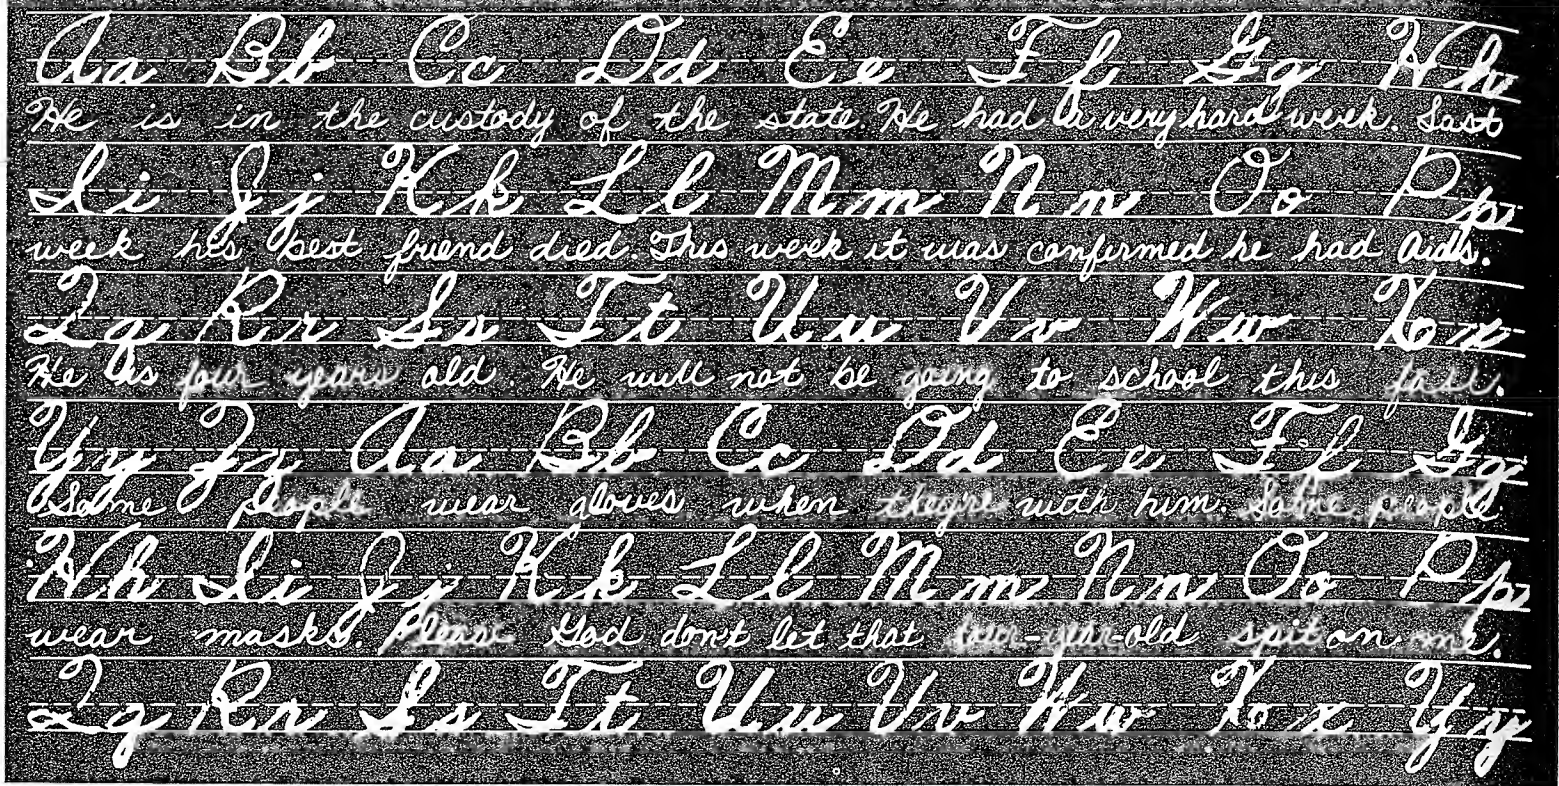 Aa Bb Cc Dd Ee Ff Gg Hh
He is in the custody of the state. He had a very hard week. Last
Ii Jj Kk Ll Mm Nn Oo Pp
week his best friend died. This week it was confirmed he had Aids.
Qq Rr Ss Tt Uu Vv Ww Xx
He is four years old. He will not be going to school this fall.
Yy Zz Aa Bb Cc Dd Ee Ff Gg
Some people wear gloves when they're with him. Some people
Hh Ii Jj Kk Ll Mm Nn Oo Pp
wear masks. Please God don't let that four-year-old spit on me.
Qq Rr Ss Tt Uu Vv Ww Xx Yy